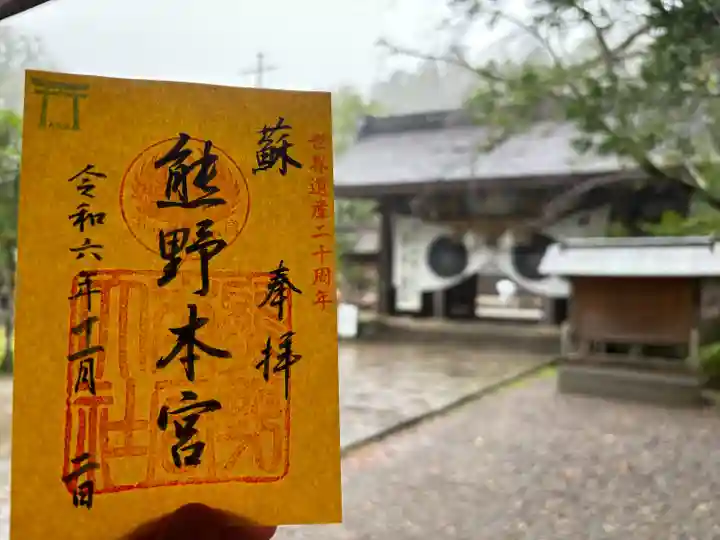 世界遺産二十周年
蘇
奉拝
熊野本宮
令和六年十一月二日